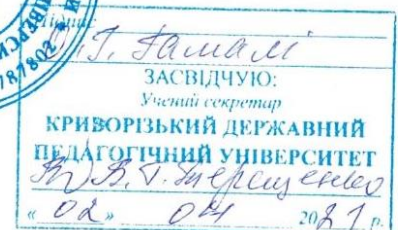 Підпис
О.Г. Гамалі
ЗАСВІДЧУЮ:
Учений секретар
КРИВОРІЗЬКИЙ ДЕРЖАВНИЙ
ПЕДАГОГІЧНИЙ УНІВЕРСИТЕТ
В.Г. Терещенко
« 02 » 04 2021 р.